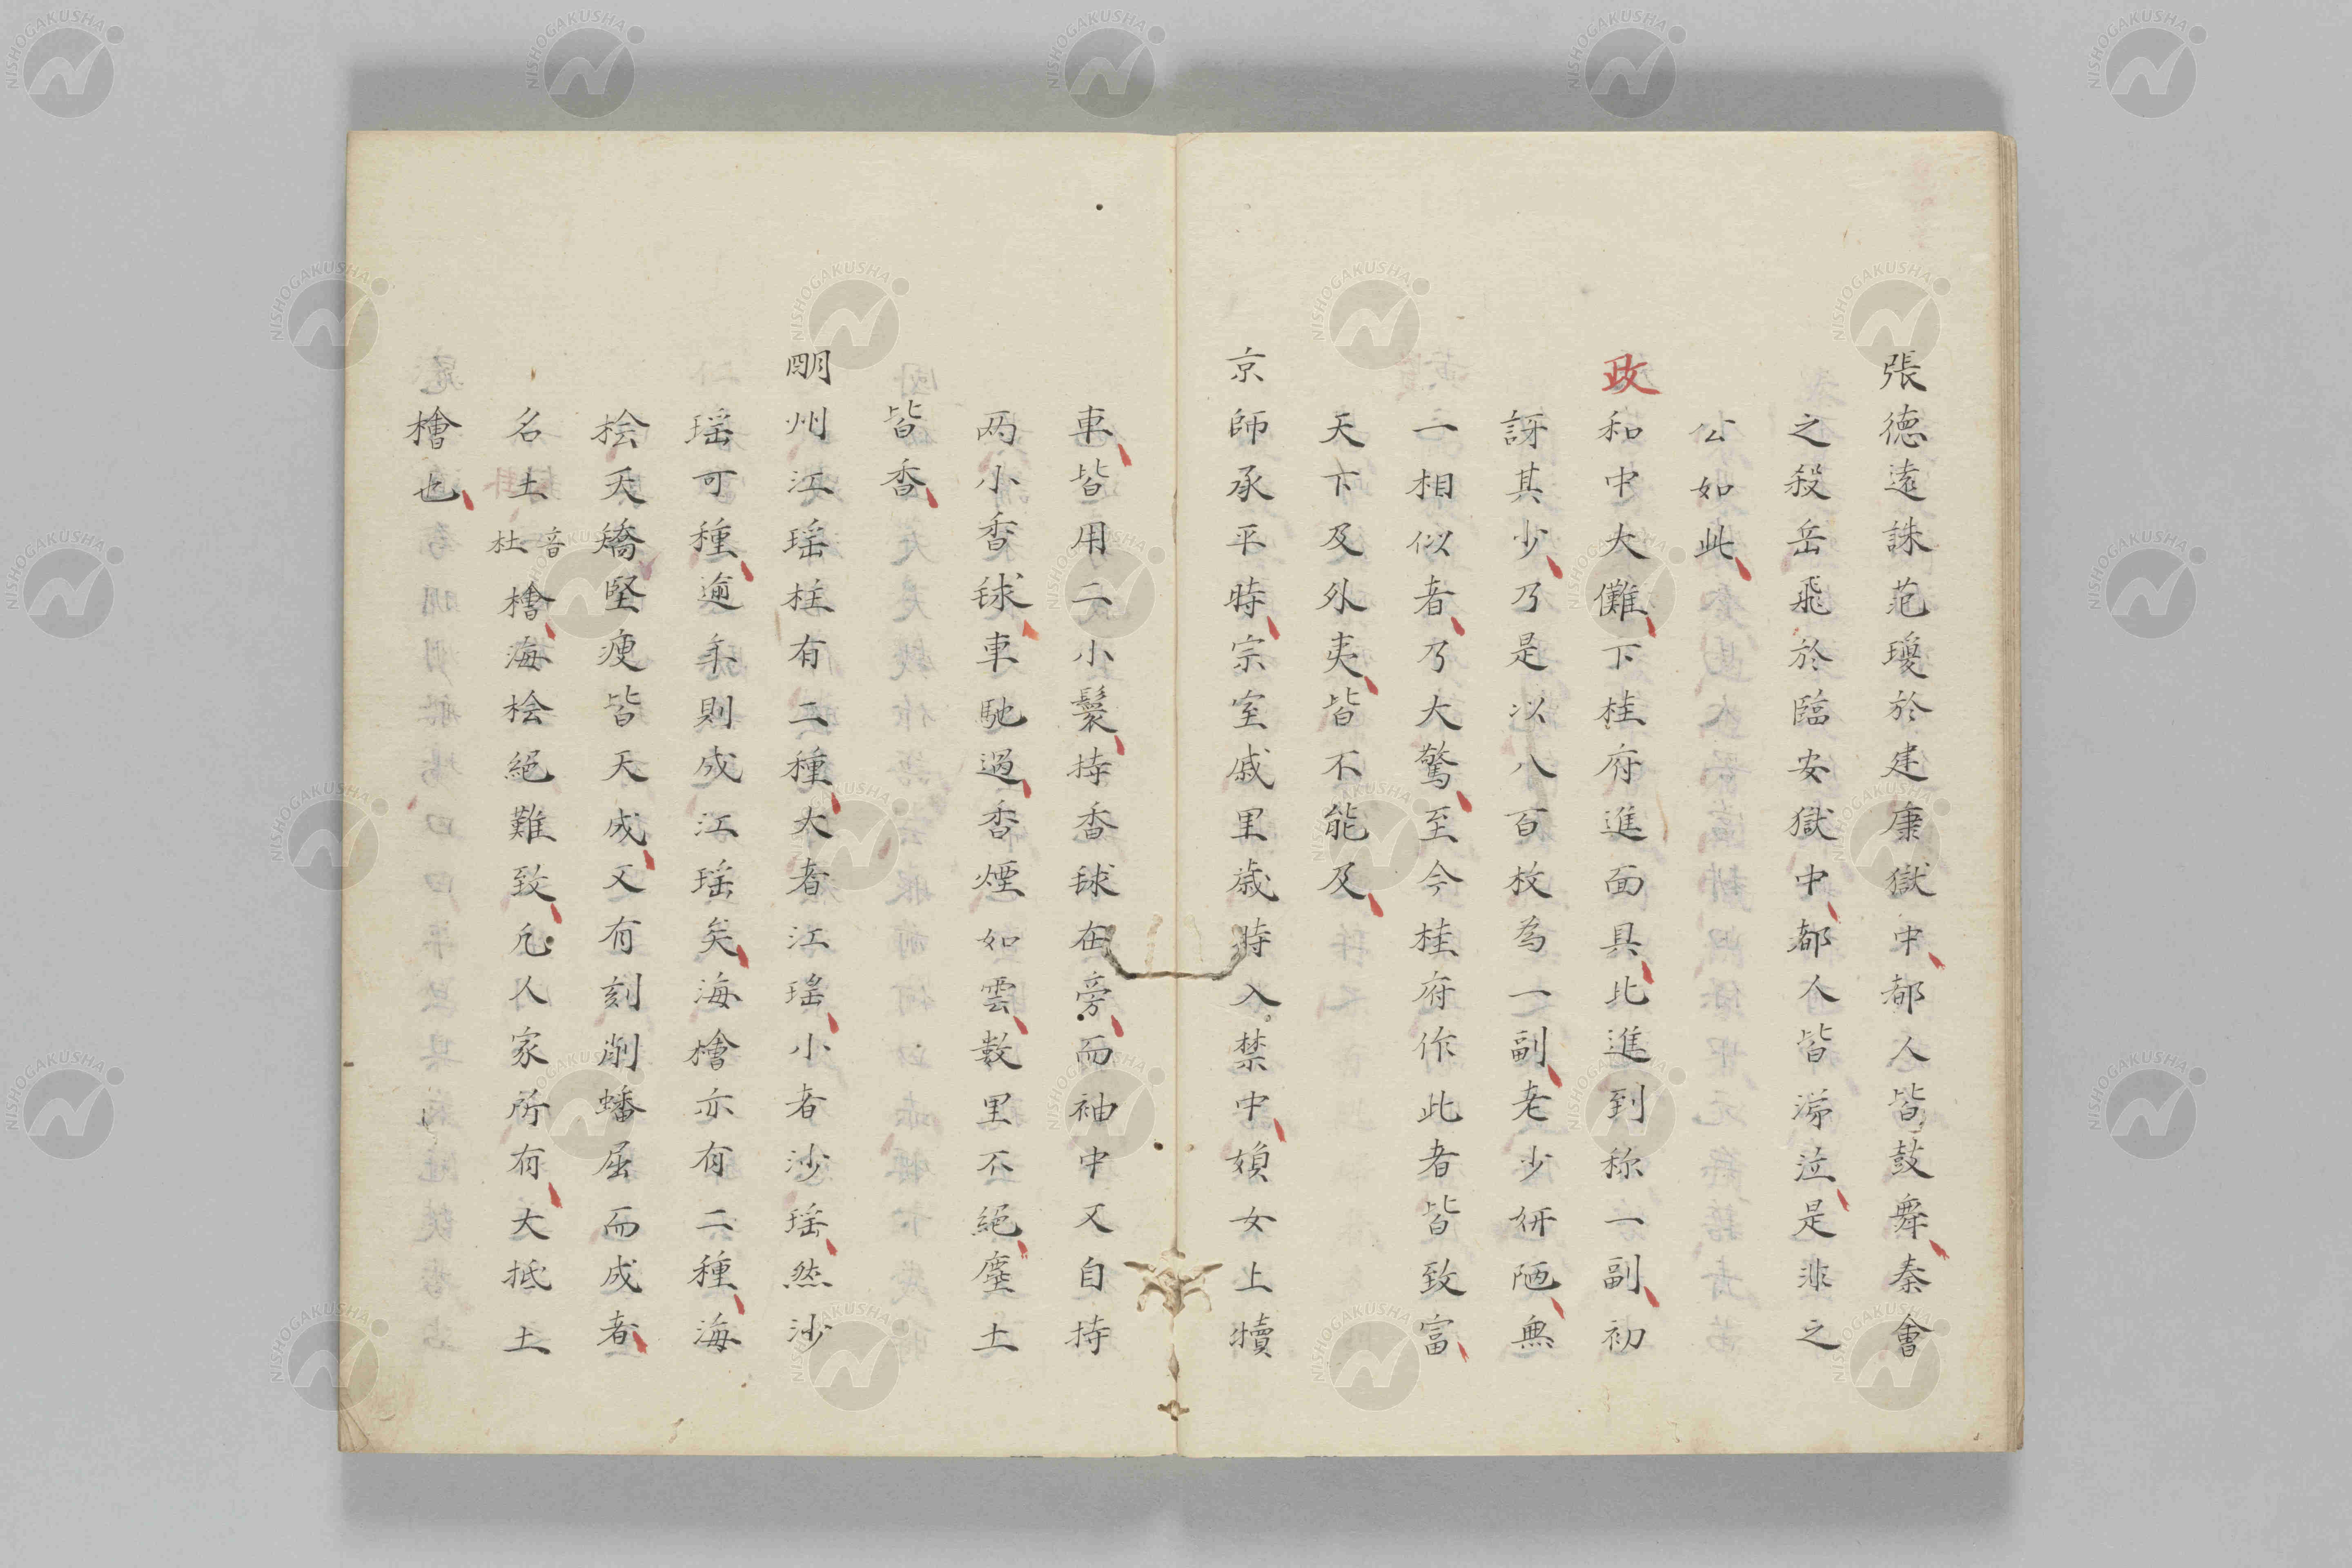 張德遠誅范瓊於建康獄中都人皆鼓舞秦會
之殺岳飛於臨安獄中都人皆涕泣是非之
公如此
政和中大儺下桂府進面具比進到称一副初
訝其少乃是以八百枚為一副老少妍陋無
一相似者乃大驚至今桂府作此者皆致富
天下及外夷皆不能及
京師承平時宗室戚里歳時入禁中婦女上犢
車皆用二小鬟持香毬在旁而袖中又自持
两小香毬車馳過香煙如雲数里不絕塵土
皆香
明州江瑶柱有二種大者江瑶小者沙瑶然沙
瑶可種逾年則成江瑶矣海檜亦有二種海
桧夭矯堅瘦皆天成又有刻削蟠屈而成者
名土音杜檜海桧絕難致凡人家所有大抵土
檜也
NISHOGAKUSHA